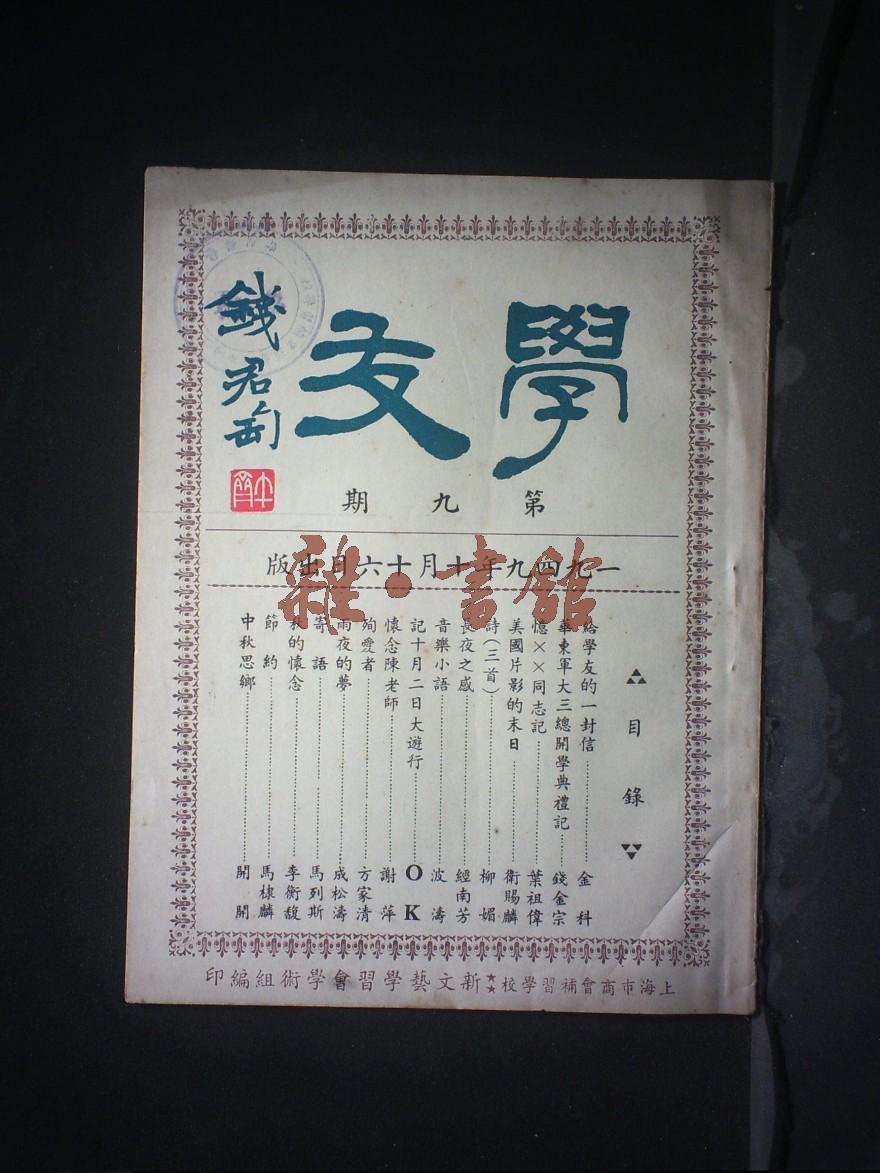 學友
錢君匋
第九期
一九四九年十月十六日出版
雜·書館
目錄
給學友的一封信 金科
華東軍大三總開學典禮記 錢金宗
憶××同志記 葉祖偉
美國片影的末日 衛賜麟
詩(三首) 柳媚
長夜之感 經南芳
音樂小語 波濤
記十月二日大遊行 OK
懷念陳老師 謝萍
殉愛者 方家清
雨夜的夢 成松濤
寄語 馬列斯
秋的懷念 李衡馥
節約 馬棣麟
中秋思鄉 開開
上海市商會補習學校★★新文藝學習會學術組編印